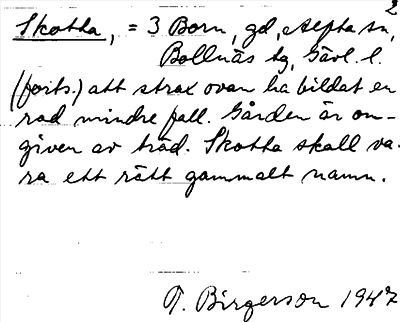 2
Skotha, = 3 Born, gd, Alfta sn,
Bollnäs tg, Gävl. l.
(forts.) att strax ovan ha bildat en
rad mindre fall. Gården är om-
given av träd. Skotha skall va-
ra ett rätt gammalt namn.
T. Birgerson 1947